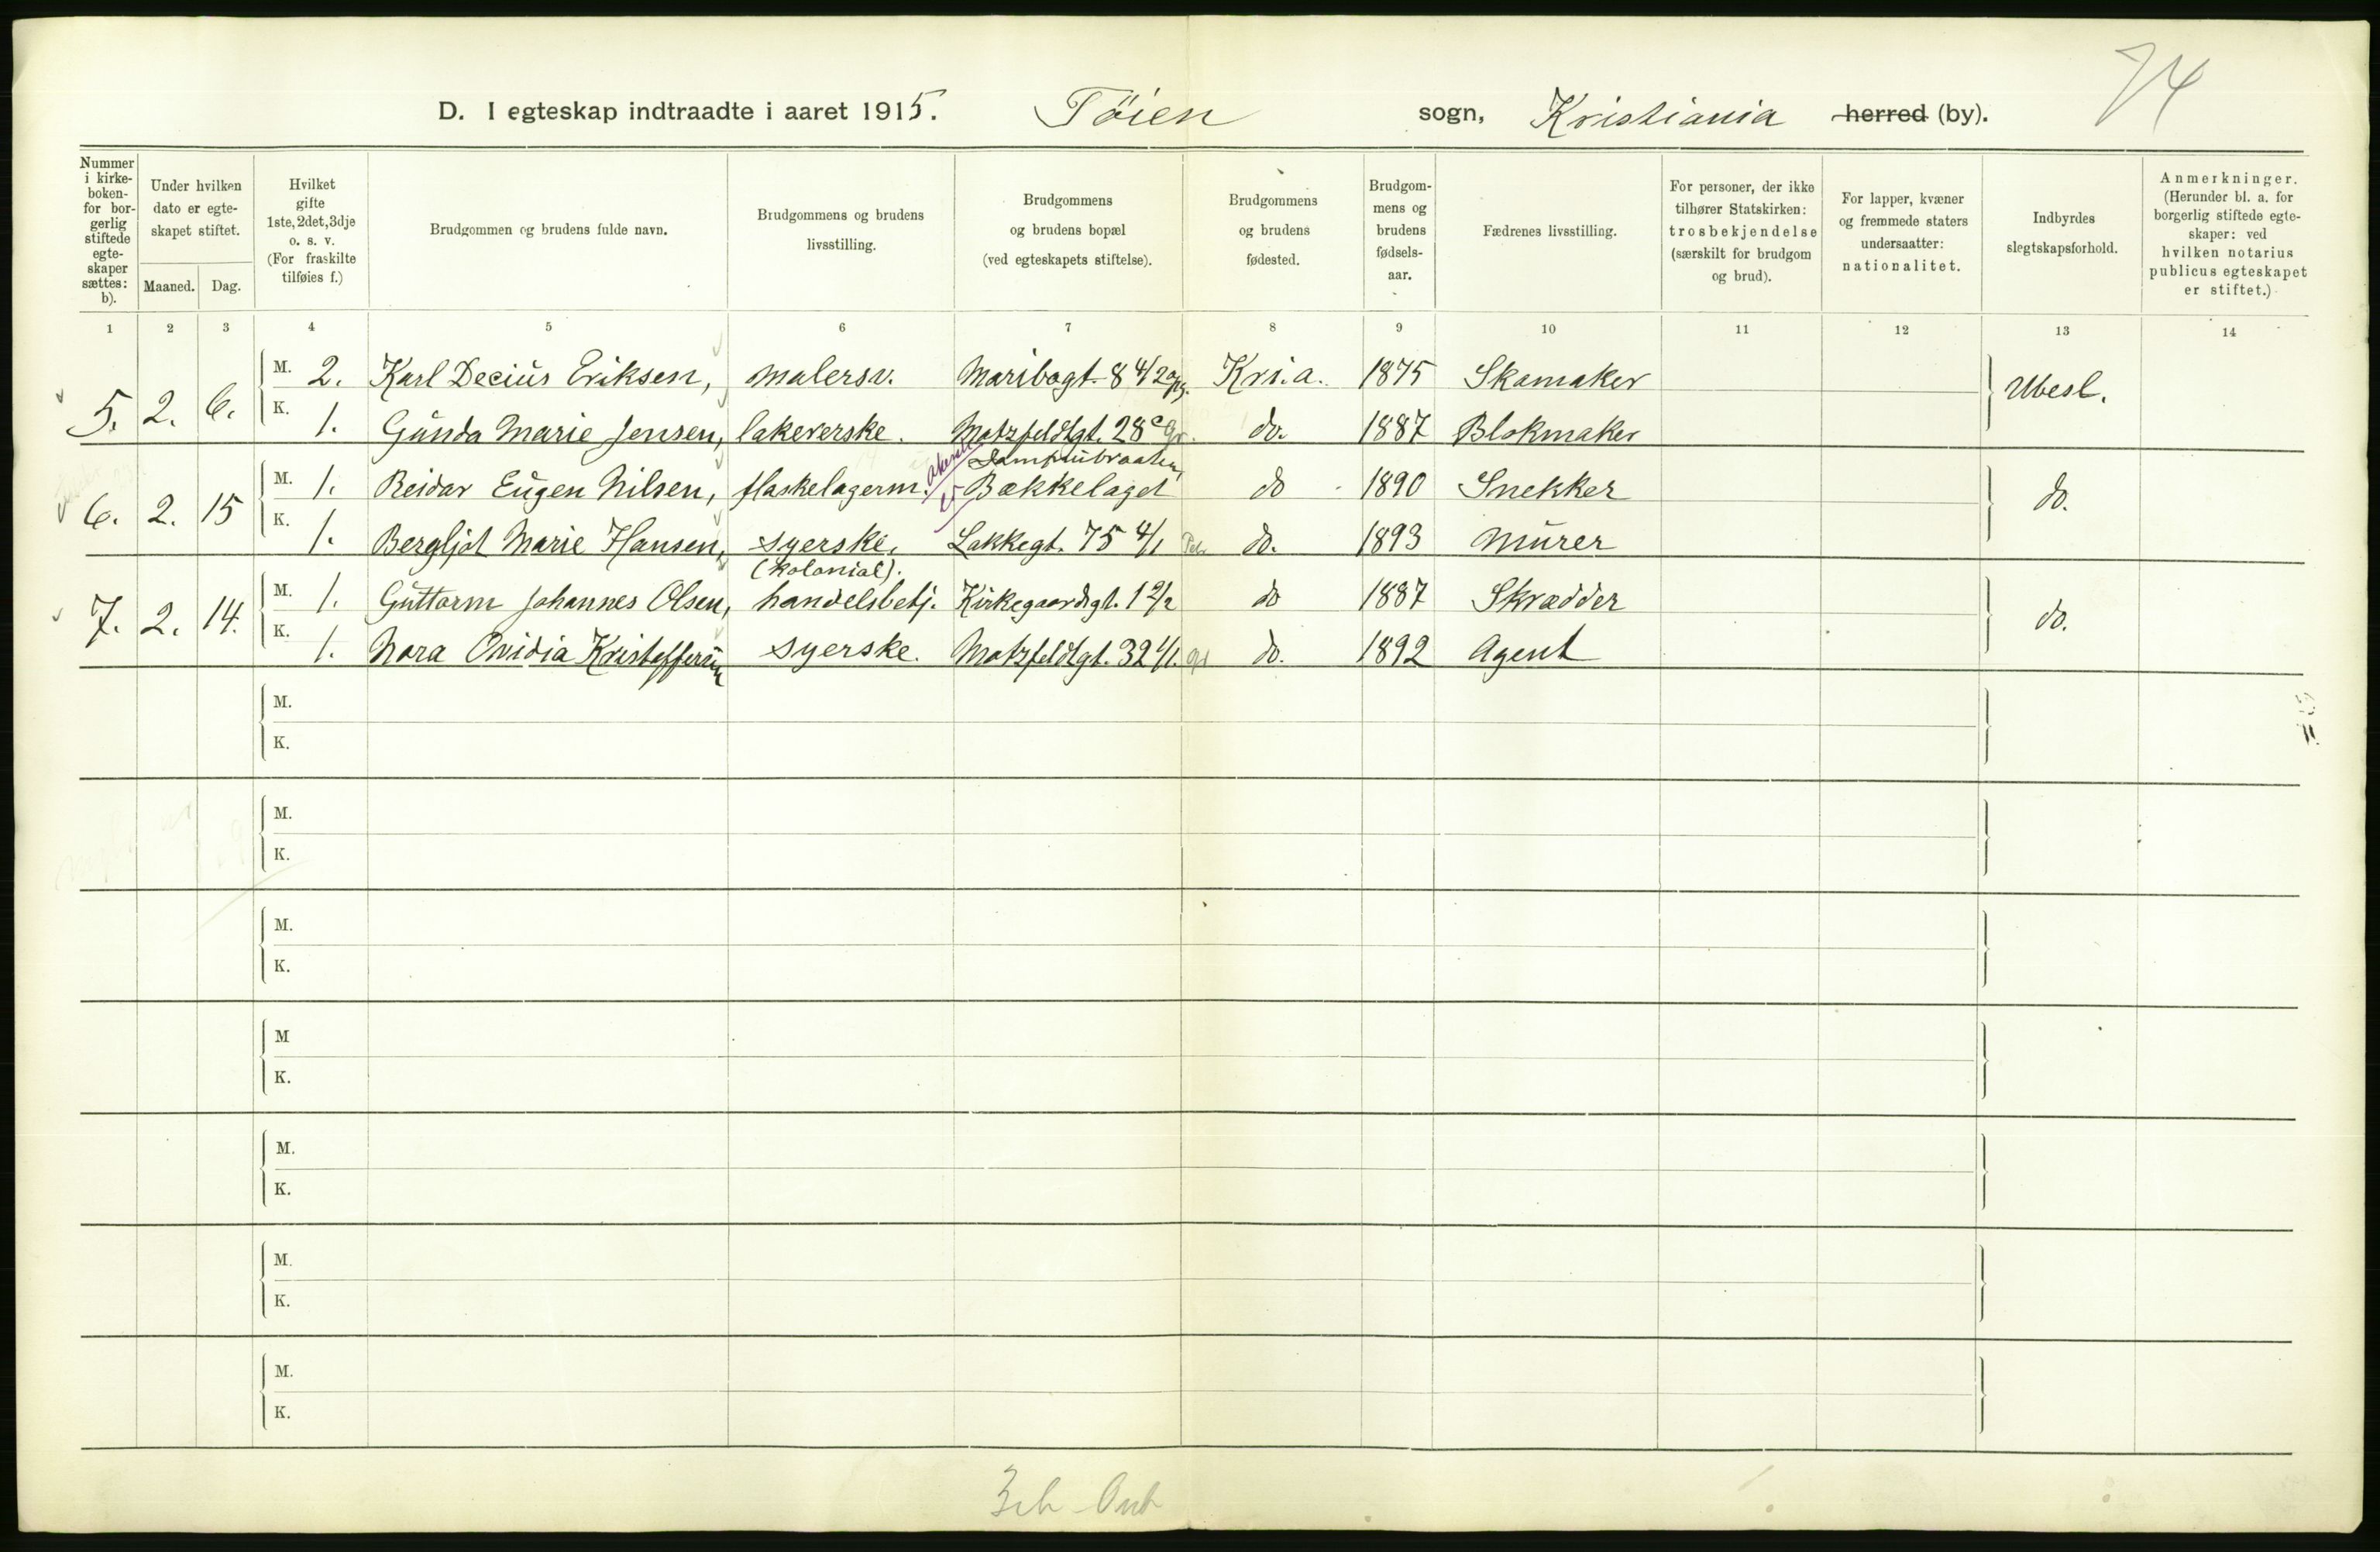 74
D. I egteskap indtraadte i aaret 1915. Töien sogn, Kristiania herred (by).
Nummer i kirkeboken- for borgerlig stiftede egteskaper sættes: b).
Under hvilken dato er egteskapet stiftet.
Maaned. Dag.
Hvilket gifte 1ste, 2det, 3dje o. s. v. (For fraskilte tilføies f.)
Brudgommen og brudens fulde navn.
Brudgommens og brudens livsstilling.
Brudgommens og brudens bopæl (ved egteskapets stiftelse).
Brudgommens og brudens fødested.
Brudgommens og brudens fødselsaar.
Fædrenes livsstilling.
For personer, der ikke tilhører Statskirken: trosbekjendelse (særskilt for brudgom og brud).
For lapper, kvæner og fremmede staters undersaatter: nationalitet.
Indbyrdes slegtskapsforhold.
Anmerkninger. (Herunder bl. a. for borgerlig stiftede egteskaper: ved hvilken notarius publicus egteskapet er stiftet.)
1 2 3 4 5 6 7 8 9 10 11 12 13 14
5. 2. 6. M. 2. Karl Decius Eriksen, malersv. Maribogt. 8 4/2 opg. Kri.a. 1875 Skomaker Ubesl.
K. 1. Gunda Marie Jensen, lakererske. Motzfeldtgt. 28 c Gr. do. 1887 Blokmaker
6. 2. 15 M. 1. Reidar Eugen Nilsen, flaskelagerm. Bækkelaget do 1890 Snekker do.
K. 1. Bergljot Marie Hansen, syerske, Lakkegt. 75 4/1 do. 1893 Murer
7. 2. 14. M. 1. Guttorm Johannes Olsen, (kolonial). handelsbetj. Kirkegaardsgt. 1 2/2 do 1887 Skrædder do.
K. 1. Nora Ovidia Kristoffersen syerske. Motzfeldtgt. 32 1/1. do. 1892 Agent
M.
K.
M.
K.
M.
K.
M
K.
M.
K.
M.
K.
M.
K.